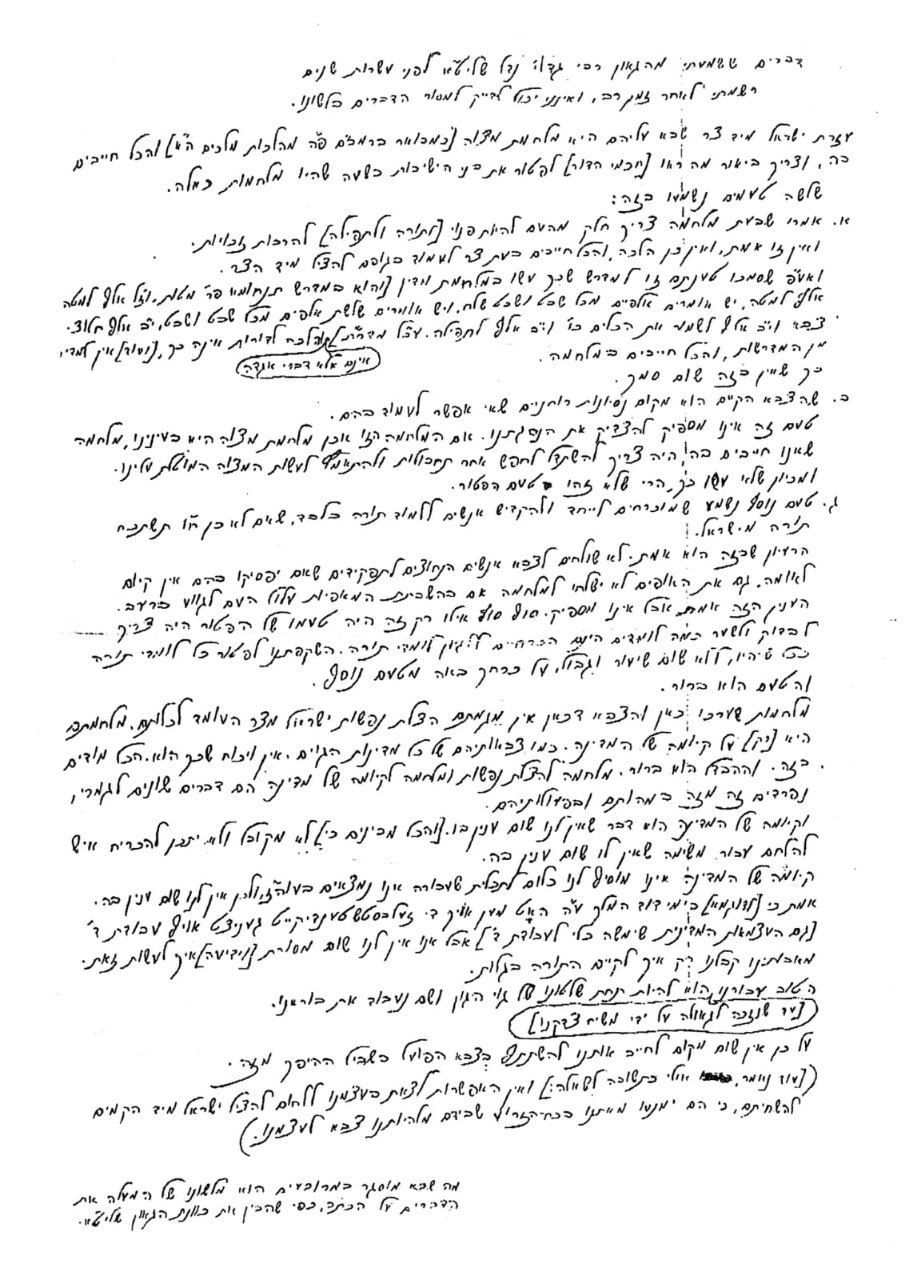 דברים ששמעתי מהגאון רבי גדל'י נדל שליט"א לפני עשרות שנים
רשמתי לאחר זמן רב, ואינני יכול לדייק למסור הדברים כלשונו.
עזרת ישראל מיד צר שבא עליהם היא מלחמת מצוה [כמבואר ברמב"ם פ"ה מהלכות מלכים ה"א] והכל חייבים
בה, וצריך ביאור מה ראו [חכמי הדור] לפטור את בני הישיבות בשעה שהיו מלחמות כאלה.
שלשה טעמים נשמעו בזה:
א. אמרו שבעת מלחמה צריך חלק מהעם להיות פנוי [לתורה ולתפילה] להרבות זכויות.
ואין זו אמת, ואין כן הלכה, והכל חייבים בעת צר לעמוד בגופם להציל מיד הצר.
ואע"פ שסמכו טענתם זו למדרש שכך עשו במלחמת מדין [והוא במדרש תנחומא פר' מטות, וז"ל אלף למטה
אלף למטה, יש אומרים אלפיים מכל שבט ושבט שלח, ויש אומרים שלשת אלפים מכל שבט ושבט, י"ב אלף חלוצי
צבא וי"ב אלף לשמור את הכלים כו' וי"ב אלף לתפילה. עכ"ל מדרש] הלכה לדורות אינה כך, [ועוד] אין למדין
אינם אלא דברי אגדה
מן המדרשות, והכל חייבים במלחמה.
כך שאין בזה שום סמך.
ב. שהצבא הקיים הוא מקום נסיונות רוחניים שאי אפשר לעמוד בהם.
טעם זה אינו מספיק להצדיק את הנהגתנו. אם המלחמה הזו אכן מלחמת מצוה היא בעינינו, מלחמה
שאנו חייבים בה, היה צריך להשתדל לחפש אחר תחבולות ולהתאמץ לעשות המצוה המוטלת עלינו.
ומכיון שלא עשו כך, הרי שלא זהו טעם הפטור.
ג. טעם נוסף נשמע שמוכרחים לייחד ולהקדיש אנשים ללמוד תורה בלבד, שאם לא כן ח"ו תשתכח
תורה מישראל.
הרעיון שבזה הוא אמת. לא שולחים לצבא אנשים הנחוצים לתפקידים שאם יפסיקו בהם אין קיום
לאומה. גם את האופים לא ישלחו למלחמה אם בהשבתת המאפיות עלול העם לגווע ברעב.
הענין הזה אמת, אבל אינו מספיק. סוף סוף אילו רק זה היה טעמו של הפטור היה צריך
לבדוק ולשער כמה לומדים הינם הכרחיים לעידוד לומדי תורה. השקפתנו לפטור כל לומדי תורה
ככל שיהיו, ללא שום שיעור וגבול, על כרחך באה מטעם נוסף.
והטעם הוא ברור.
מלחמות שערכו כאן והצבא דכאן אין מגמתם הצלת נפשות ישראל מצר העומד לכלותם. מלחמתם
היא [רק] על קיומה של המדינה. כמו צבאותיהם של כל מדינות הגויים. אין ויכוח שכך הוא. הכל מודים
בזה. וההבדל הוא ברור. מלחמה להצלת נפשות ומלחמה לקיומה של מדינה הם דברים שונים לגמרי,
נפרדים זה מזה במהותם ובפעולותיהם.
וקיומה של המדינה הוא דבר שאין לנו שום ענין בו. [והכל מבינים כי] לא מקובל ולא יתכן להכריח איש
להלחם עבור משימה שאין לו שום ענין בה.
קיומה של המדינה אינו מוסיף לנו כלום לתכלית שעבורה אנו נמצאים בעוה"ז, ולכן אין לנו שום ענין בה.
אמת כי [לדוגמא] בימי דוד המלך ע"ה האט מען אויך די זעלבסטשטענדיקייט גענוצט אויף עבודת ד'
[גם העצמאות המדינית שימשה כלי לעבודת ד'] אבל אנו אין לנו שום מסורת [וידיעה] איך לעשות זאת.
מאבותינו קבלנו רק איך לקיים התורה בגלות.
הטוב עבורנו הוא להיות תחת שלטונו של גוי הגון ושם נעבוד את בוראנו.
[עד שנזכה לגאולה על ידי משיח צדקנו]
על כן אין שום מקום לחייב אותנו להשתתף בצבא הפועל בשביל ההיפך מזה.
([עוד נאמר, אולי כתשובה לשאלה:] ואין האפשרות לצאת בעצמנו ללחום להציל ישראל מיד הקמים
להשחיתם, כי הם ימנעו מאיתנו בכח הזרוע שבידם מלהיותנו צבא לעצמנו.)
מה שבא מוסגר במרובעים הוא מלשונו של המעלה את
הדברים על הכתב, כפי שהבין את כוונת הגאון שליט"א.